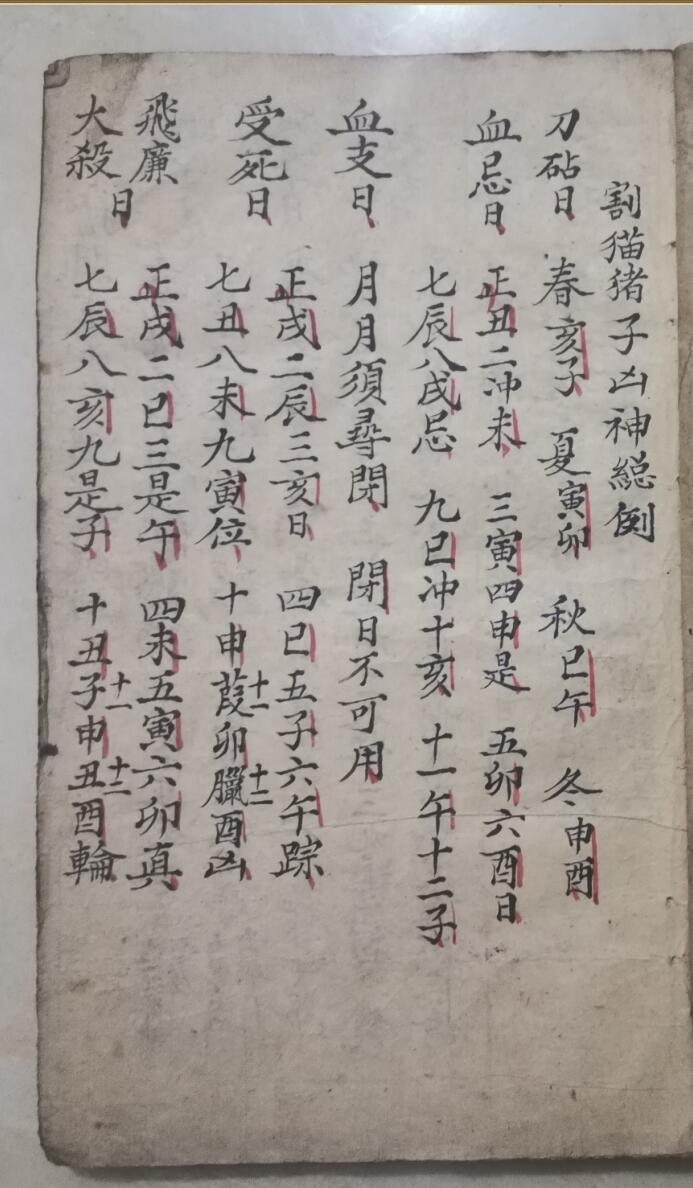 割猫猪子凶神總例
刀砧日 春亥子 夏寅卯 秋巳午 冬申酉
血忌日 正丑二冲未 三寅四申是 五卯六酉日
七辰八戌忌 九巳冲十亥 十一午十二子
血支日 月月須尋閉 閉日不可用
受死日 正戌二辰三亥日 四巳五子六午踪
七丑八未九寅位 十申葭十一卯臘十二酉凶
飛廉大殺日 正戌二巳三是午 四未五寅六卯真
七辰八亥九是子 十丑子十一申丑十二酉輪